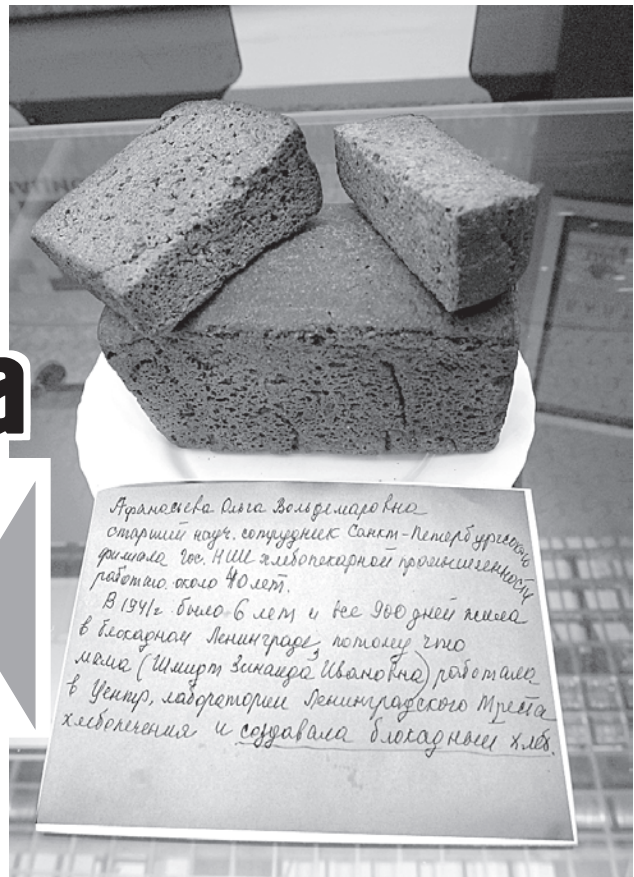 а
Афанасьева Ольга Вольдемаровна
старший науч. сотрудник Санкт-Петербургского
филиала Гос. НИИ хлебопекарной промышленности
работаю около 40 лет.
В 1941г. было 6 лет и все 900 дней жила
в блокадном Ленинграде, потому что
мама (Шмидт Зинаида Ивановна) работала
в Центр. лаборатории Ленинградского Треста
хлебопечения и создавала блокадный хлеб.